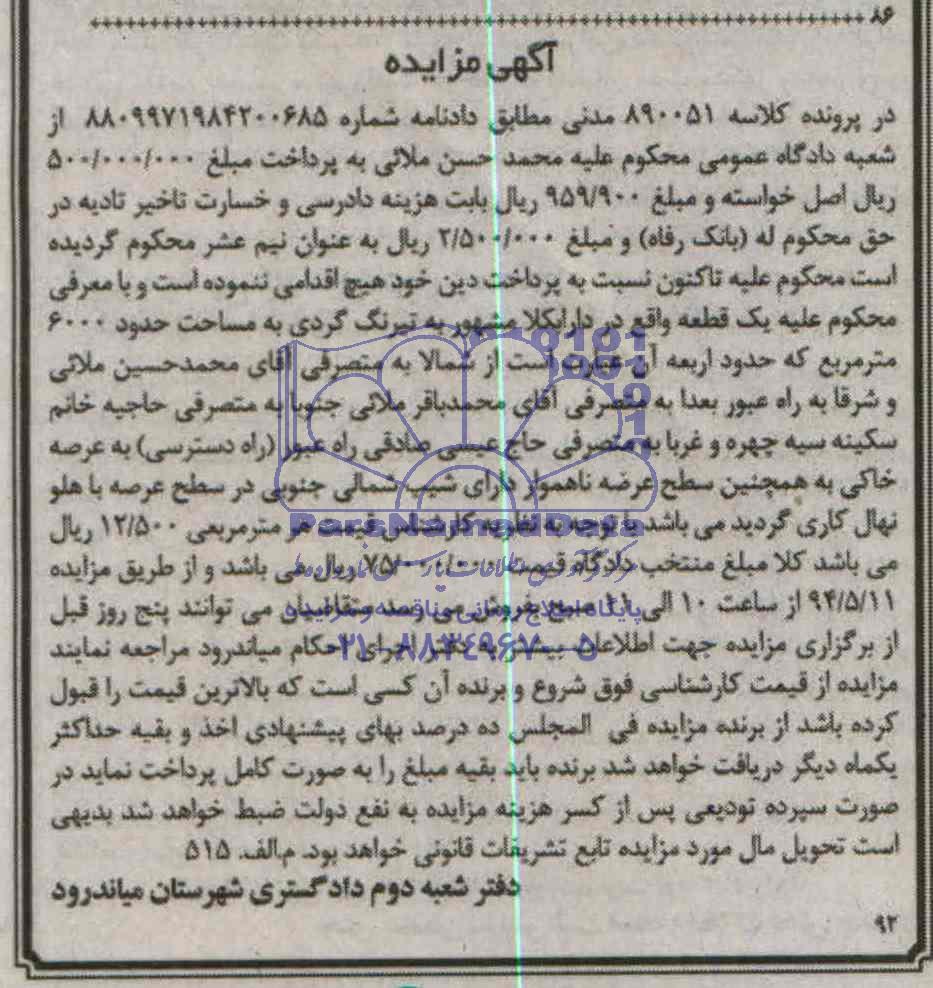 ۸۶
آگهی مزایده
در پرونده کلاسه ۸۹۰۰۵۱ مدنی مطابق دادنامه شماره ۸۸۰۹۹۷۱۹۸۴۲۰۰۶۸۵ از
شعبه دادگاه عمومی محکوم علیه محمد حسن ملائی به پرداخت مبلغ ۵۰۰/۰۰۰/۰۰۰
ریال اصل خواسته و مبلغ ۹۵۹/۹۰۰ ریال بابت هزینه دادرسی و خسارت تاخیر تادیه در
حق محکوم له (بانک رفاه) و مبلغ ۲/۵۰۰/۰۰۰ ریال به عنوان نیم عشر محکوم گردیده
است محکوم علیه تاکنون نسبت به پرداخت دین خود هیچ اقدامی ننموده است و با معرفی
محکوم علیه یک قطعه واقع در دارابکلا مشهور به تیرنگ گردی به مساحت حدود ۶۰۰۰
مترمربع که حدود اربعه آن عبارت است از شمالا به متصرفی آقای محمدحسین ملائی
و شرقا به راه عبور بعدا به متصرفی آقای محمدباقر ملائی جنوبا به متصرفی حاجیه خانم
سکینه سیه چهره و غربا به متصرفی حاج عیسی صادقی راه عبور (راه دسترسی) به عرصه
خاکی به همچنین سطح عرضه ناهموار دارای شیب شمالی جنوبی در سطح عرصه با هلو
نهال کاری گردید می باشد با توجه به نظریه کارشناس قیمت هر مترمربعی ۱۲/۵۰۰ ریال
می باشد کلا مبلغ منتخب دادگاه قیمت ریال می باشد و از طریق مزایده
۹۴/۵/۱۱ از ساعت ۱۰ الی ۱۱ صبح بفروش می رسد متقاضیان می توانند پنج روز قبل
از برگزاری مزایده جهت اطلاعات بیشتر به دفتر اجرای احکام میاندرود مراجعه نمایند
مزایده از قیمت کارشناسی فوق شروع و برنده آن کسی است که بالاترین قیمت را قبول
کرده باشد از برنده مزایده فی المجلس ده درصد بهای پیشنهادی اخذ و بقیه حداکثر
یکماه دیگر دریافت خواهد شد برنده باید بقیه مبلغ را به صورت کامل پرداخت نماید در
صورت سپرده تودیعی پس از کسر هزینه مزایده به نفع دولت ضبط خواهد شد بدیهی
است تحویل مال مورد مزایده تابع تشریفات قانونی خواهد بود. م.الف. ۵۱۵
دفتر شعبه دوم دادگستری شهرستان میاندرود
۹۲
ParsNamadData
پایگاه اطلاع رسانی مناقصه و مزایده
۰۲۱-۸۸۳۴۹۶۷۰-۵